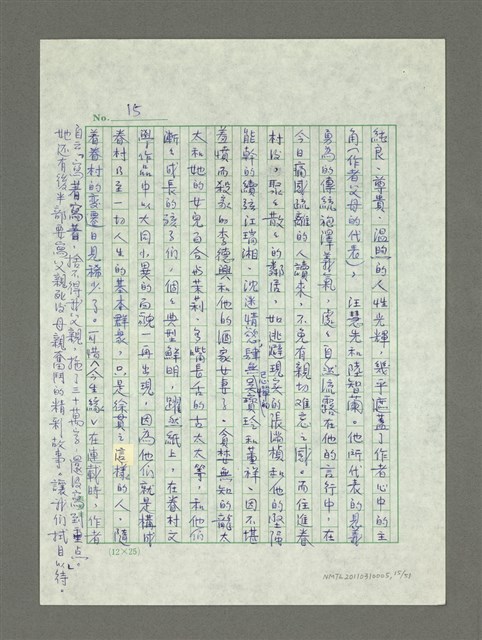 No. 15
純良、尊貴、溫煦的人性光輝，幾乎遮蓋了作者心中的主
角（作者父母的代表），汪慧先和陸智蘭。他所代表的見義
勇為的傳統袍澤義氣，處處自然流露在他的言行中，在
今日痛感疏離的人讀來，不免有親切難忘之感。而往進眷
村後，聚聚散散的鄰居，如逃避現實的張楨和他的堅強
能幹的續弦江瑞湘、沈迷情慾肆無忌憚的吳寶玲和董祥、因不堪
羞憤而殺家的李德興和他的酒家女妻子、貪婪無知的龍太
太和她的女兒百合我茉莉、多嘴長舌的古太太等，和他們
漸漸成長的孩子們，個個典型鮮明，躍然紙上，在眷村文
學作品中以大同小異的面貌一再出現，因為他們就是構成
眷村乃至一切人生的基本群象，只是徐蕢這樣的人，隨
着眷村的變遷日見稀少了。可惜〈今生緣〉在連載時，作者
自云「寫着寫着，捨不得我父親，拖了三十萬字，還沒寫到重點。」
她還有後半部要寫父親死後母親奮鬥的精彩故事。讓我們拭目以待。
(12×25)
NMTL20110310005, 15/